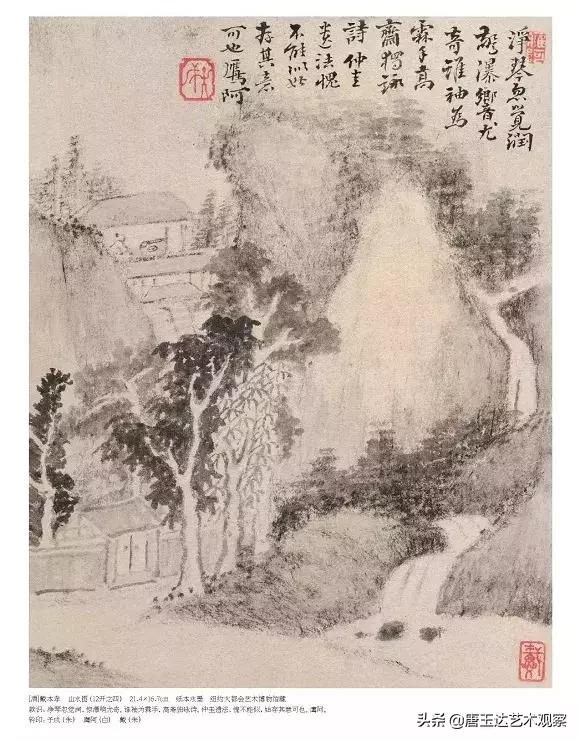 淨琴忽覺潤
驚瀑響尤
奇誰袖為
霖手高
齋獨詠
詩仲圭
遺法愧
不能似姑
存其意
可也鷹阿
[清]戴本孝 山水图(12开之四) 21.4×16.7cm 纸本水墨 纽约大都会艺术博物馆藏
款识：净琴忽觉润，惊瀑响尤奇。谁袖为霖手，高斋独咏诗。仲圭遗法，愧不能似，姑存其意可也，鹰阿。
钤印： (朱) 鹰阿(白) 戴(朱)
头条@唐玉达艺术观察